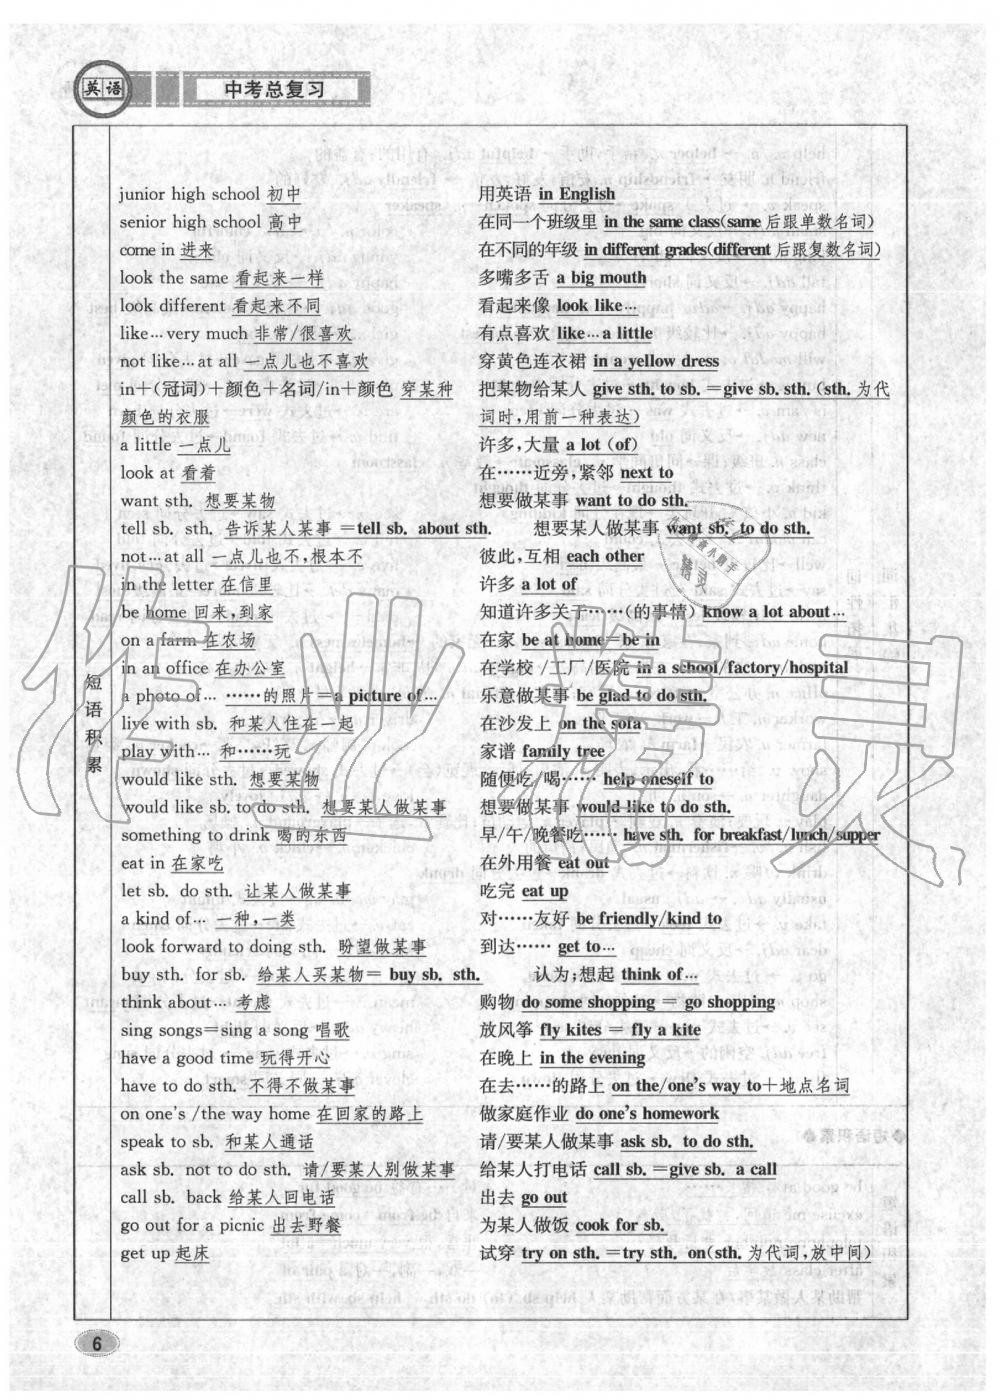 英语
中考总复习
短语积累
junior high school 初中
senior high school 高中
come in 进来
look the same 看起来一样
look different 看起来不同
like…very much 非常/很喜欢
not like…at all 一点儿也不喜欢
in+(冠词)+颜色+名词/in+颜色 穿某种
颜色的衣服
a little 一点儿
look at 看着
want sth. 想要某物
tell sb. sth. 告诉某人某事 =tell sb. about sth.
not…at all 一点儿也不,根本不
in the letter 在信里
be home 回来,到家
on a farm 在农场
in an office 在办公室
a photo of… ……的照片=a picture of…
live with sb. 和某人住在一起
play with… 和……玩
would like sth. 想要某物
would like sb. to do sth. 想要某人做某事
something to drink 喝的东西
eat in 在家吃
let sb. do sth. 让某人做某事
a kind of… 一种,一类
look forward to doing sth. 盼望做某事
buy sth. for sb. 给某人买某物= buy sb. sth.
think about… 考虑
sing songs=sing a song 唱歌
have a good time 玩得开心
have to do sth. 不得不做某事
on one's /the way home 在回家的路上
speak to sb. 和某人通话
ask sb. not to do sth. 请/要某人别做某事
call sb. back 给某人回电话
go out for a picnic 出去野餐
get up 起床
用英语 in English
在同一个班级里 in the same class(same 后跟单数名词)
在不同的年级 in different grades(different 后跟复数名词)
多嘴多舌 a big mouth
看起来像 look like…
有点喜欢 like…a little
穿黄色连衣裙 in a yellow dress
把某物给某人 give sth. to sb. =give sb. sth. (sth. 为代
词时,用前一种表达)
许多,大量 a lot (of)
在……近旁,紧邻 next to
想要做某事 want to do sth.
想要某人做某事 want sb. to do sth.
彼此,互相 each other
许多 a lot of
知道许多关于……(的事情) know a lot about…
在家 be at home=be in
在学校/工厂/医院 in a school/factory/hospital
乐意做某事 be glad to do sth.
在沙发上 on the sofa
家谱 family tree
随便吃/喝…… help oneself to
想要做某事 would like to do sth.
早/午/晚餐吃…… have sth. for breakfast/lunch/supper
在外用餐 eat out
吃完 eat up
对……友好 be friendly/kind to
到达…… get to…
认为;想起 think of…
购物 do some shopping = go shopping
放风筝 fly kites = fly a kite
在晚上 in the evening
在去……的路上 on the/one's way to+地点名词
做家庭作业 do one's homework
请/要某人做某事 ask sb. to do sth.
给某人打电话 call sb. =give sb. a call
出去 go out
为某人做饭 cook for sb.
试穿 try on sth. =try sth. on(sth. 为代词,放中间)
6